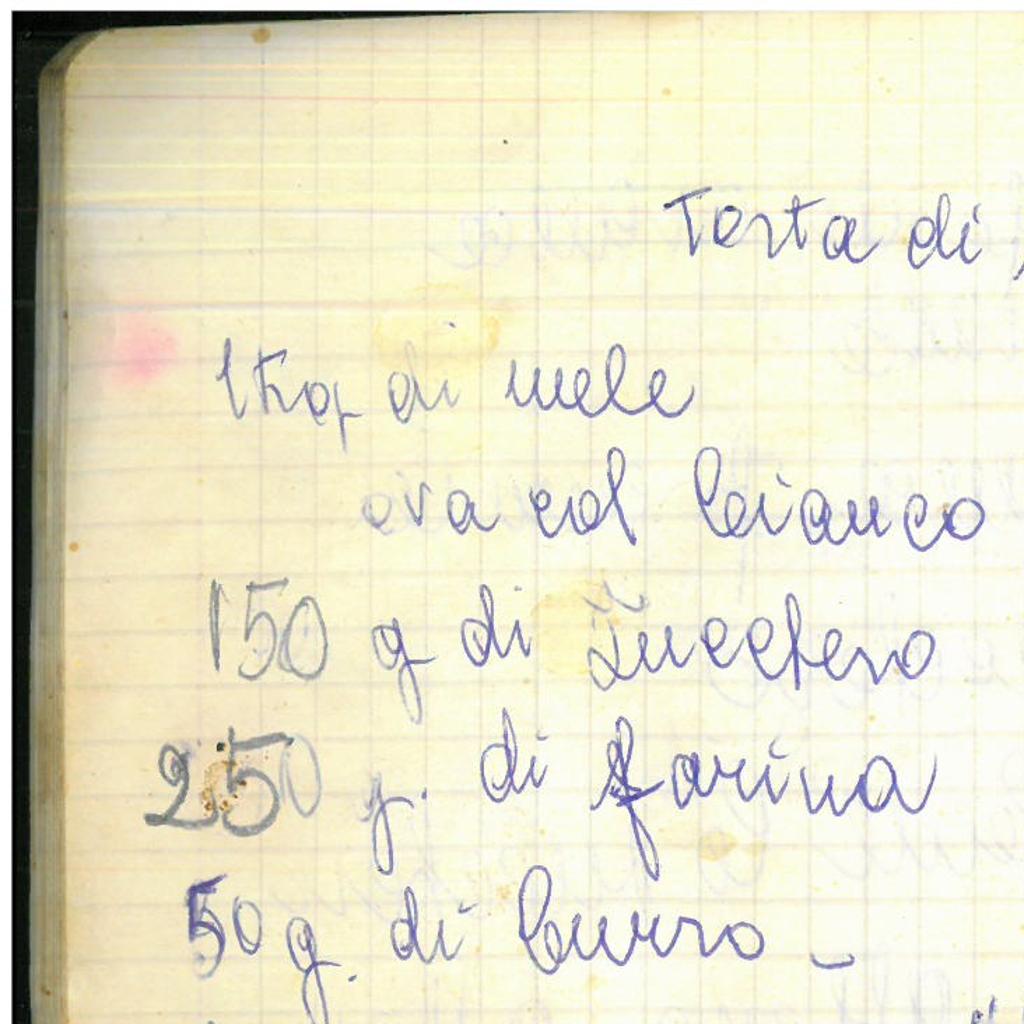 Torta di
1 kg di mele
ova col bianco
150 g di zucchero
250 g. di farina
50 g. di burro -